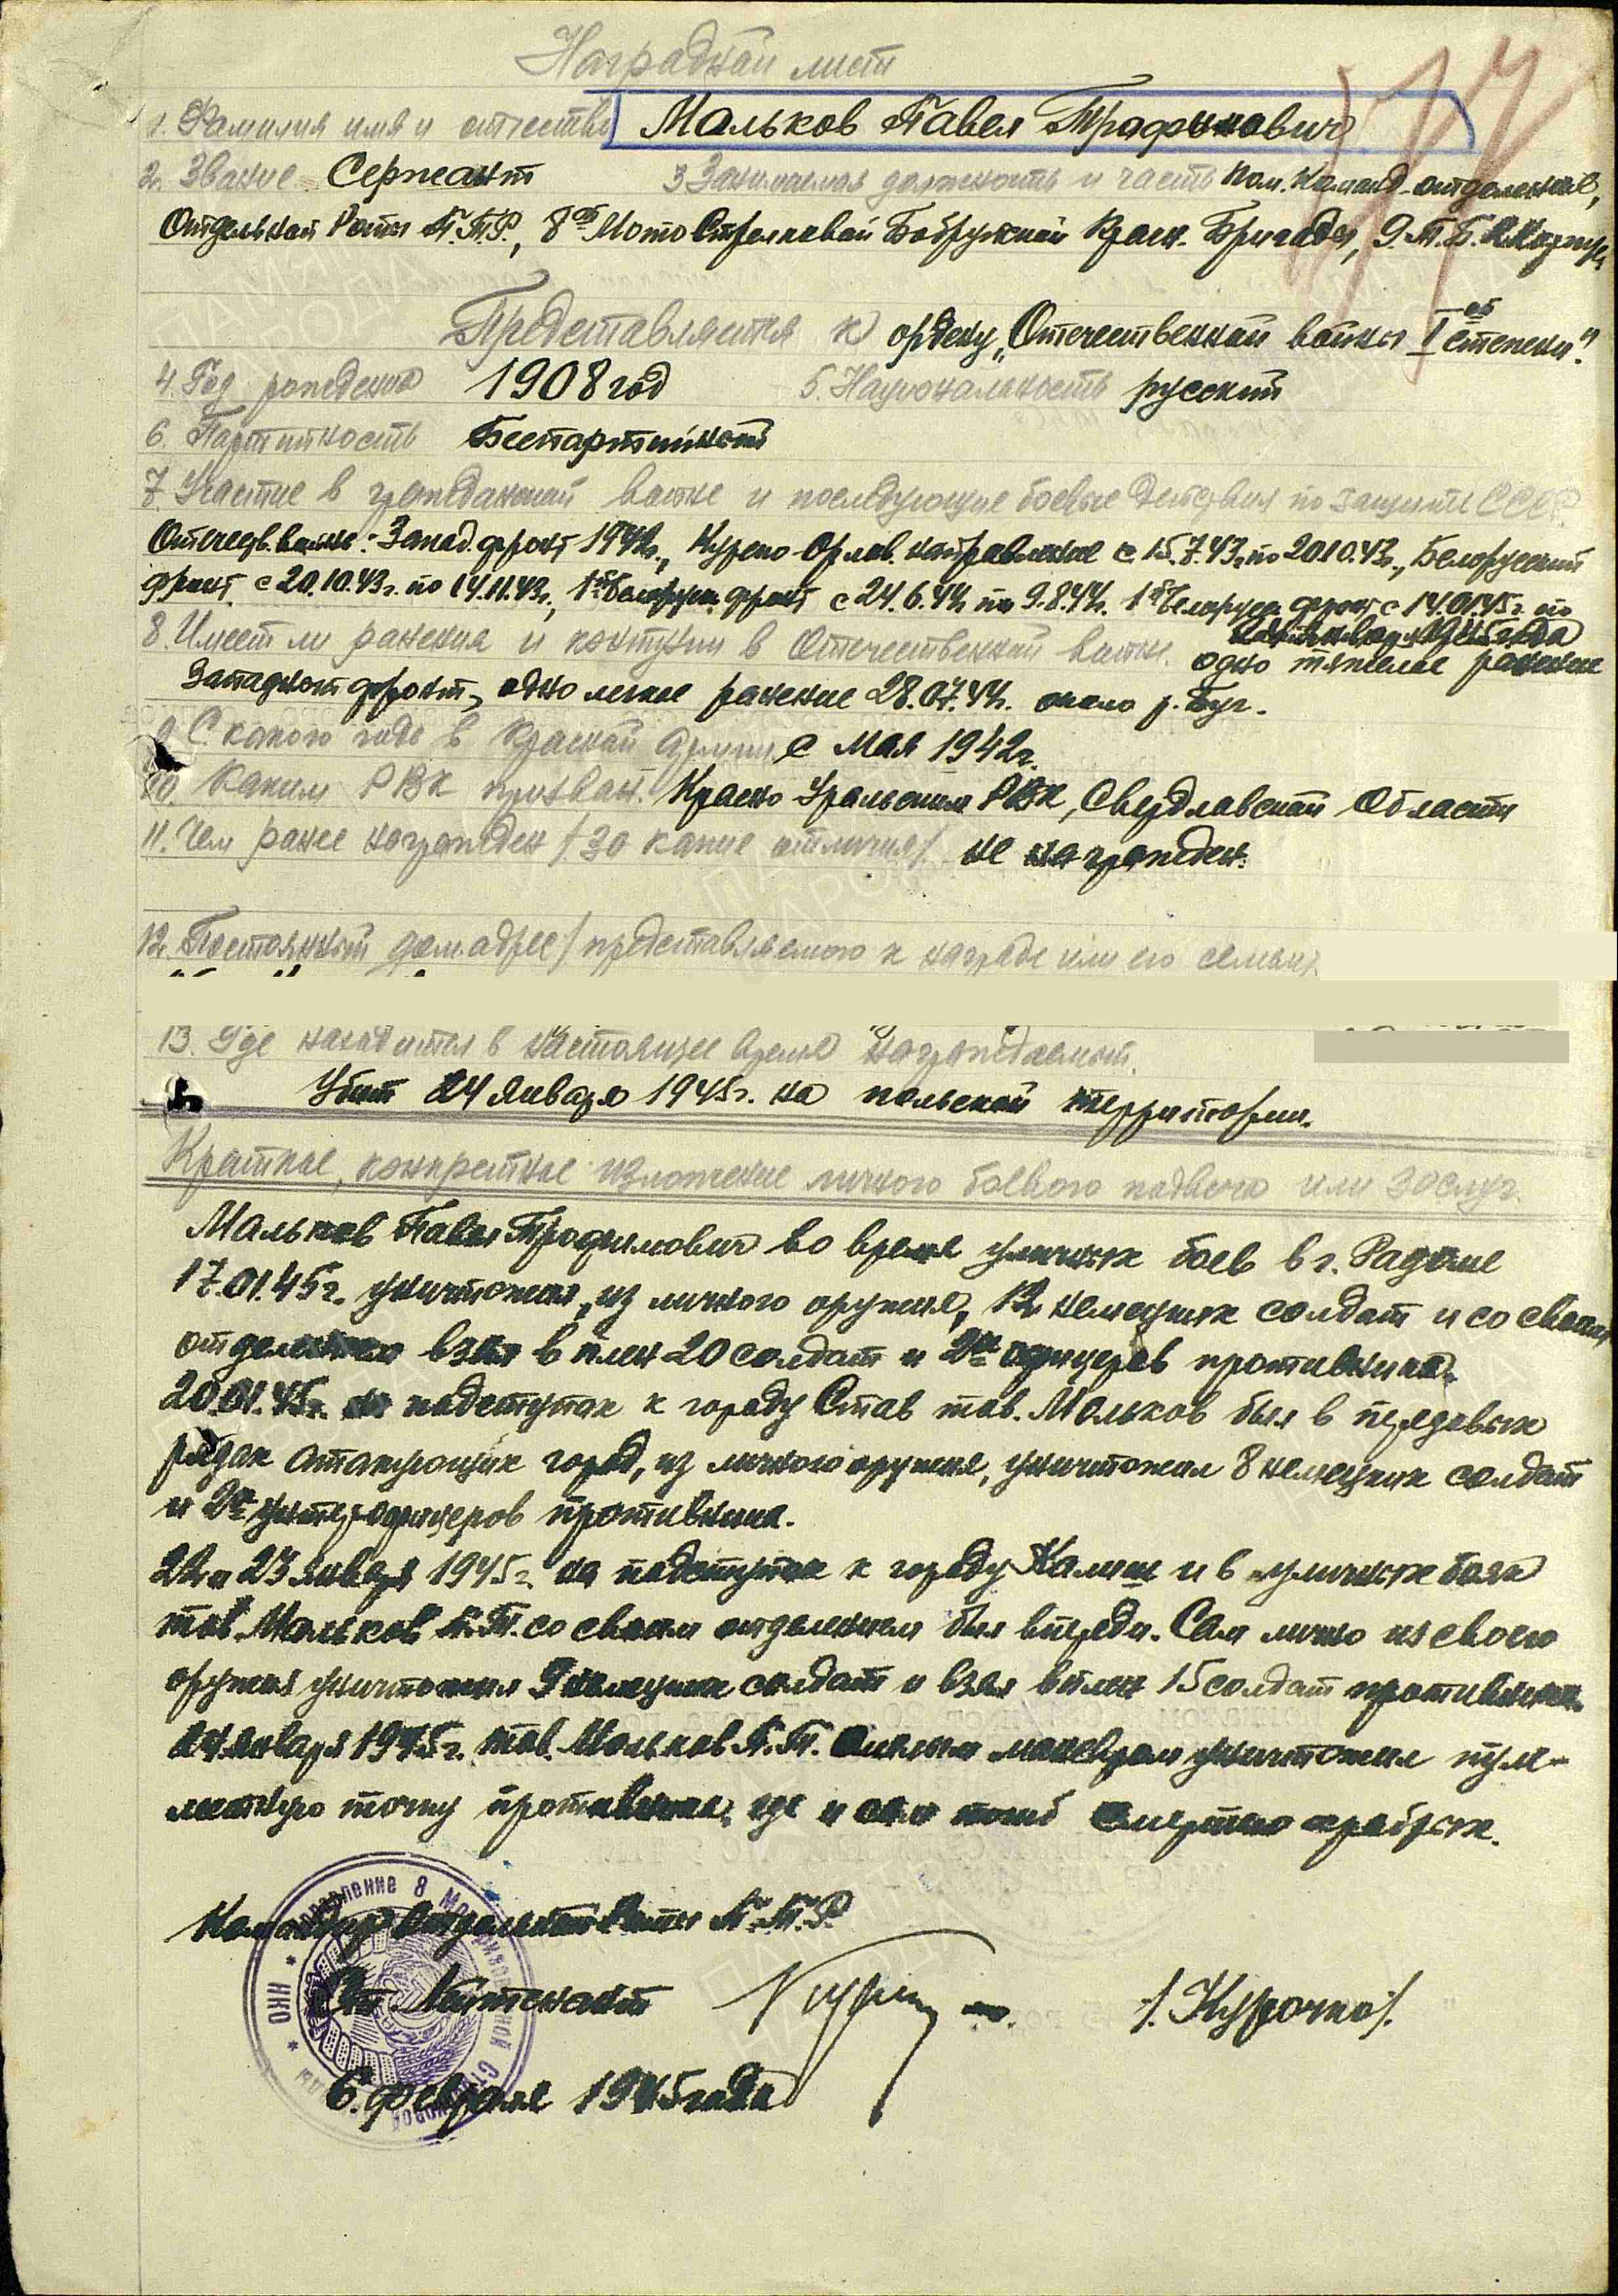 Наградной лист
1. Фамилия имя и отчество Мальков Павел Трофимович
2. Звание Сержант 3 Занимаемая должность и часть Пом. Команд. отделения,
Отдельной Роты П.Т.Р., 8ой Мото Стрелковой Бобруйской Краск. Бригады, 9.Т.Б.
Представляется к ордену „Отечественной войны I ой степени".
4. Год рождения 1908 год 5. Национальность русский
6. Партийность Беспартийный
7. Участие в гражданской войне и последующие боевые действия по защите СССР.
Отечеств. война: Запад. фронт 1942г., Курско-Орлов. направление с 15.7.43г. по 20.10.43г., Белорусский
фронт с 20.10.43г. по 14.11.43г., 1ый Белорусс. фронт с 24.6.44г. по 9.8.44г. 1ый Белорусс. фронт с 14.01.45г. по
8. Имеет ли ранения и контузии в Отечественной войне. одно тяжелое ранение
Западный фронт, одно легкое ранение 28.07.44г. около р. Буг.
9. С какого года в Красной Армии с Мая 1942г.
10. Каким РВК призван. Красно Уральским РВК, Свердловской Области
11. Чем ранее награжден /за какие отличия/. не награжден.
12. Постоянный дом. адрес /представляемого к награде или его семьи/.
13. Где находится в настоящее время награждаемый.
Убит 24 Января 1945г. на польской территории.
Краткое, конкретное изложение личного боевого подвига или заслуг.
Мальков Павел Трофимович во время уличных боев в г. Радоме
17.01.45г. уничтожил, из личного оружия, 12 немецких солдат и со своим
отделением взял в плен 20 солдат и 2ух офицеров противника.
20.01.45г. на подступах к городу Став тов. Мальков был в передовых
рядах атакующих город, из личного оружия, уничтожил 8 немецких солдат
и 2ух унтер-офицеров противника.
22 и 23 января 1945г. на подступах к городу Калиш и в уличных боях
тов. Мальков П.Т. со своим отделением был впереди. Сам лично из своего
оружия уничтожил 9 немецких солдат и взял в плен 15 солдат противника.
24 января 1945г. тов. Мальков П.Т. смелым маневром уничтожил пуле-
метную точку противника, где и сам погиб смертью храбрых.
Командир Отдельной Роты П.Т.Р.
Ст. Лейтенант /Курочко/.
6. февраля 1945 года